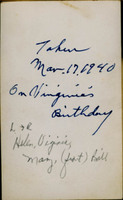 Taken
Mar. 17, 1940
On Virginia's
Birthday
L. to R
Helen, Virginia,
Mary, (front) Bill.